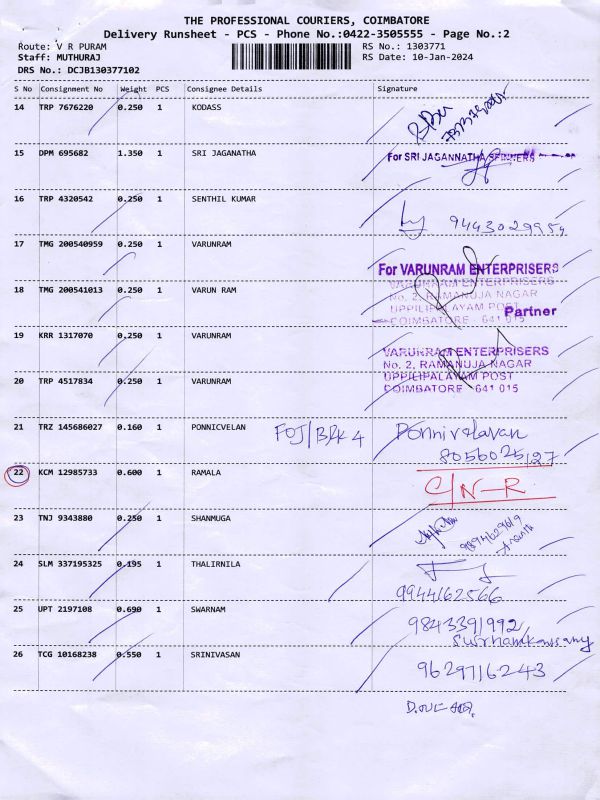 THE PROFESSIONAL COURIERS, COIMBATORE
Delivery Runsheet - PCS - Phone No.:0422-3505555 - Page No.:2
Route: V R PURAM
RS No.: 1303771
Staff: MUTHURAJ
RS Date: 10-Jan-2024
DRS No.: DCJB130377102
S No Consignment No Weight PCS Consignee Details Signature
14 TRP 7676220 0.250 1 KODASS
15 DPM 695682 1.350 1 SRI JAGANATHA For SRI JAGANNATHA SPINNERS
16 TRP 4320542 0.250 1 SENTHIL KUMAR
9443029954
17 TMG 200540959 0.250 1 VARUNRAM
For VARUNRAM ENTERPRISERS
VARUNRAM ENTERPRISERS
18 TMG 200541013 0.250 1 VARUN RAM No. 2, RAMANUJA NAGAR
UPPILIPALAYAM POST
Partner
COIMBATORE - 641 015
19 KRR 1317070 0.250 1 VARUNRAM
VARUNRAM ENTERPRISERS
No. 2, RAMANUJA NAGAR
20 TRP 4517834 0.250 1 VARUNRAM UPPILIPALAYAM POST
COIMBATORE - 641 015
21 TRZ 145686027 0.160 1 PONNICVELAN FOJ/BRK 4 Ponnivelavan
8056025127
22 KCM 12985733 0.600 1 RAMALA
C/N-R
23 TNJ 9343880 0.250 1 SHANMUGA
9894629619
Ananth
24 SLM 337195325 0.195 1 THALIRNILA
9944162566
25 UPT 2197108 0.690 1 SWARNAM
9843391992
26 TCG 10168238 0.550 1 SRINIVASAN
9629716243